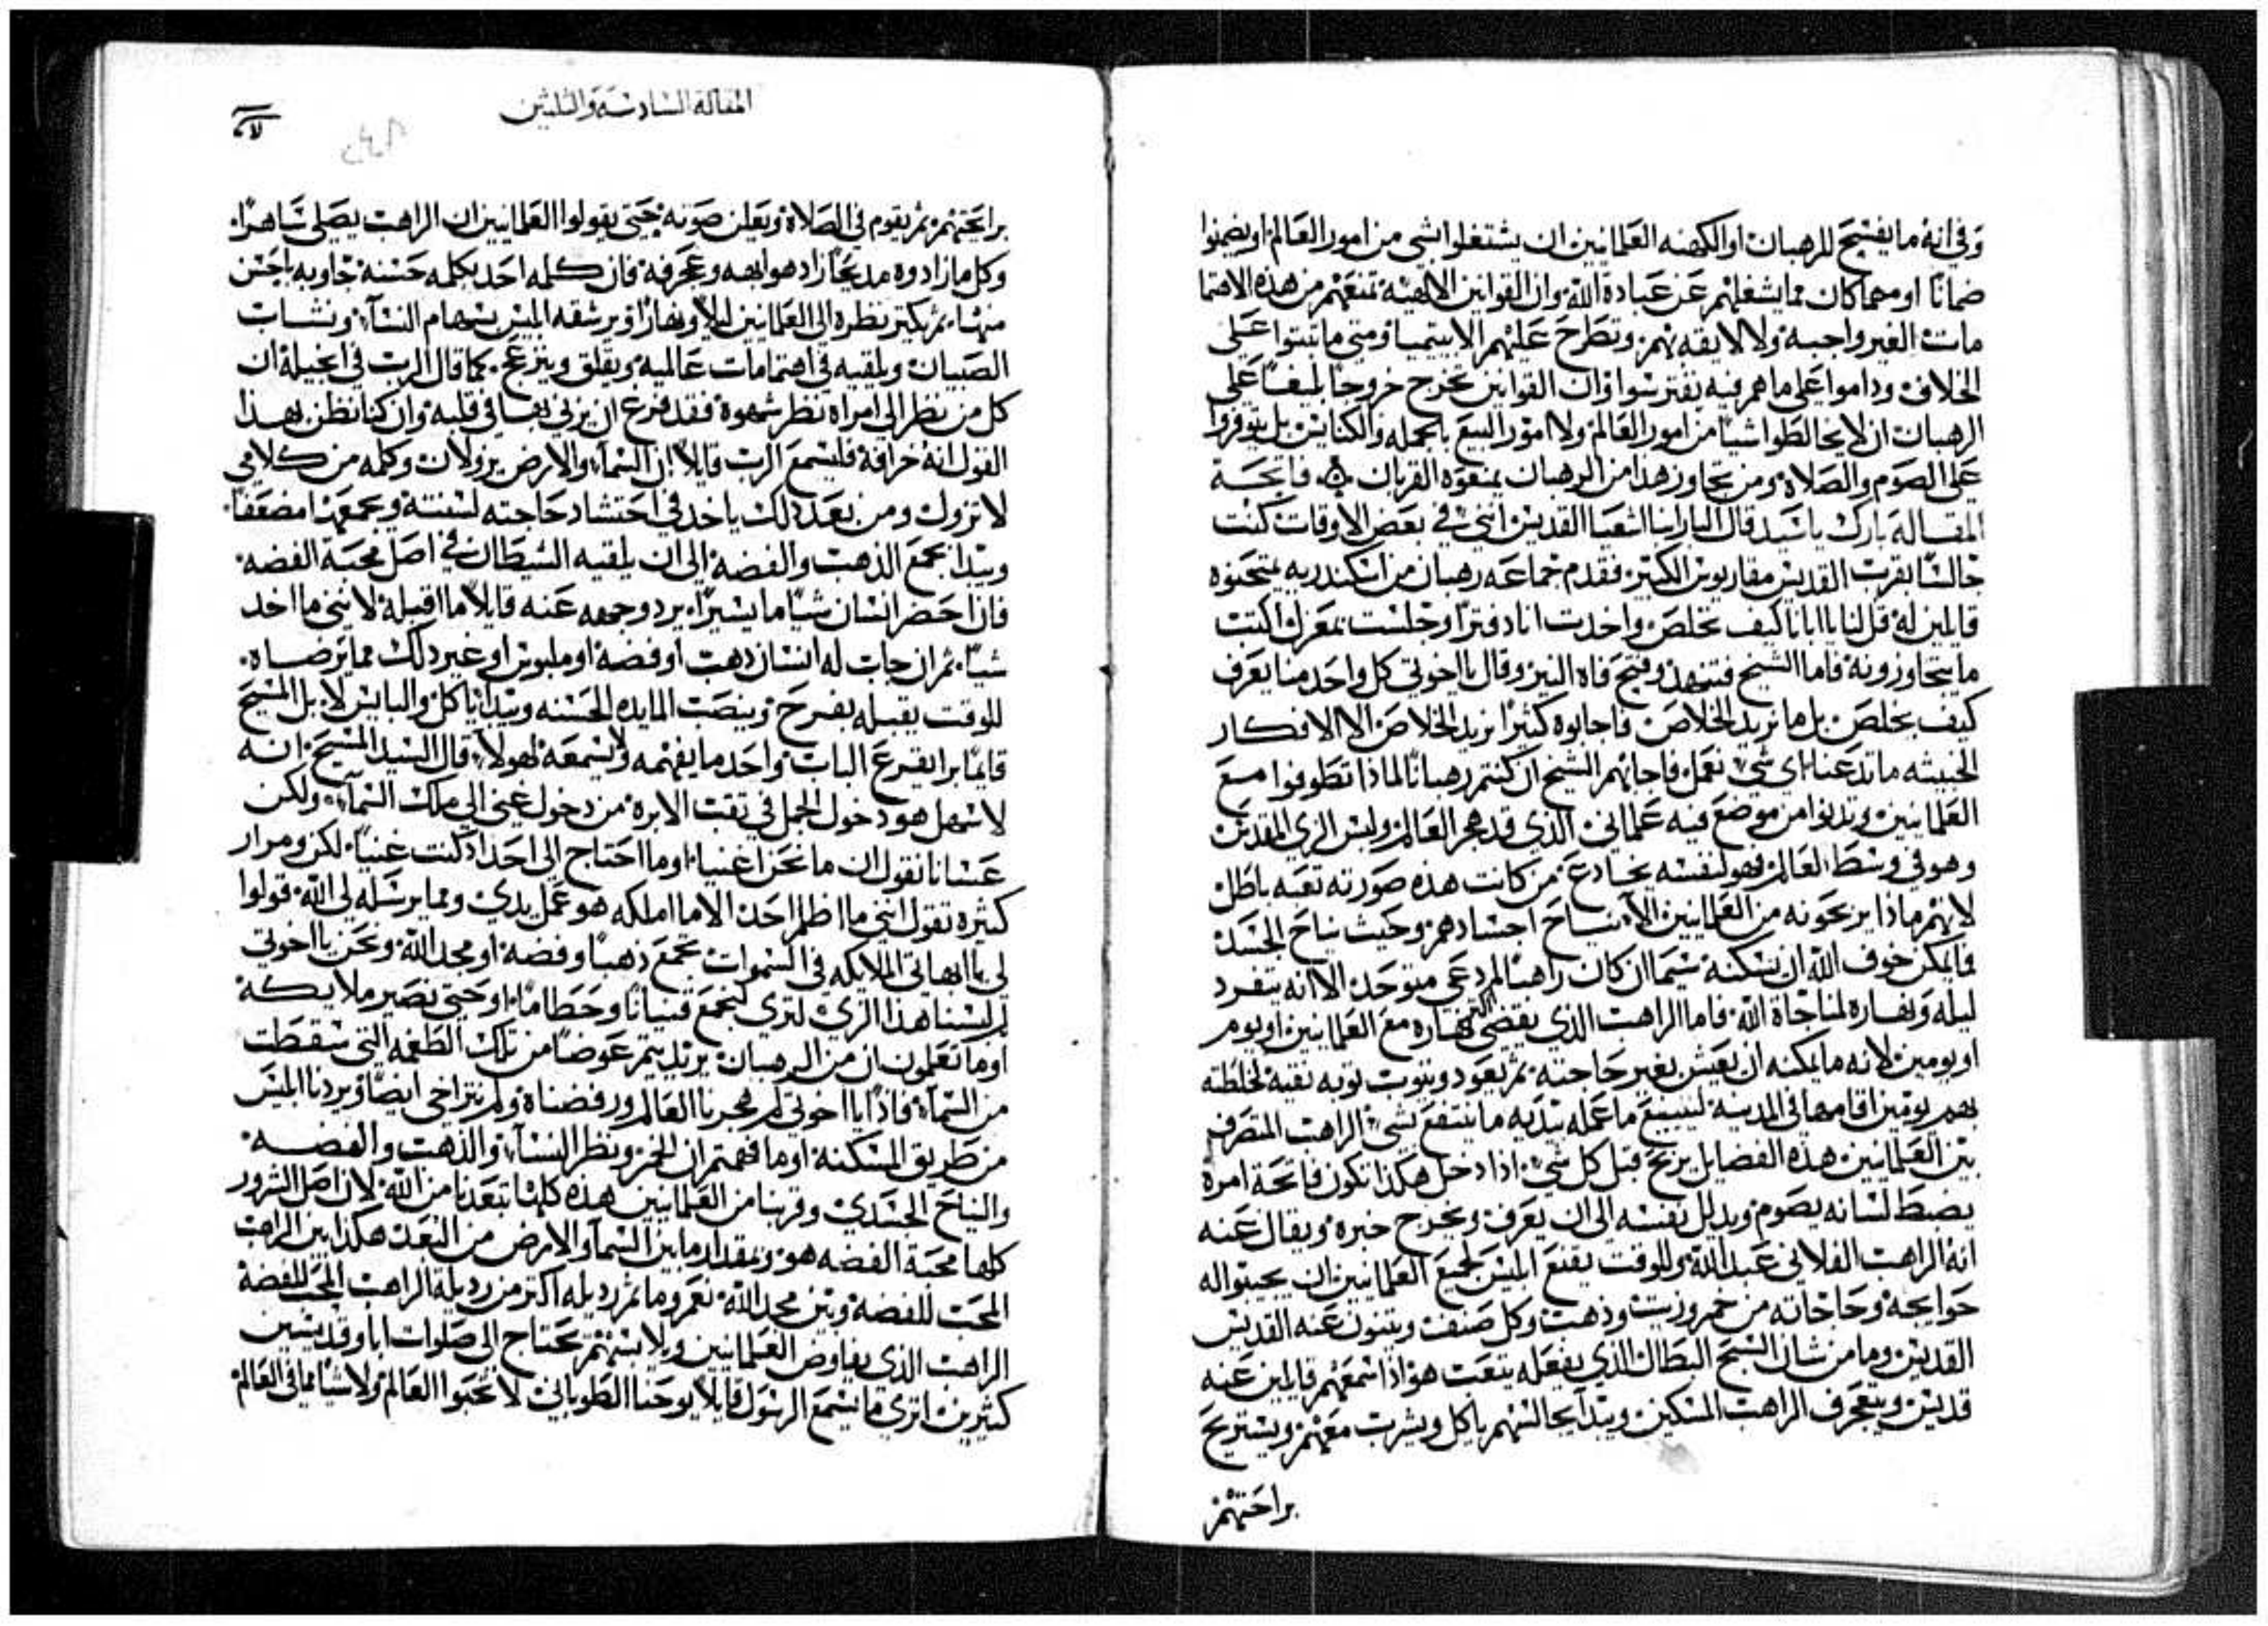 وفي انه ما يفسح للرهبان او الكهنه العلمانيين ان يشتغلوا بشي من امور العالم او يضمنوا
ضمانًا او مهما كان مما يشغلهم عن عبادة الله وان القوانين الالهية تمنعهم من هذه الاهتما
مات الغير واجبه ولا لايقه بهم وتطرح عليهم الابيتيميا ومتي ما ثبتوا علي
الخلاف وداموا علي ما هم فيه يفترسوا وان القوانين تخرج خروجًا بليغًا علي
الرهبان ان لا يخالطوا شيا من امور العالم ولا امور البيع بالجمله والكنايس بل يتوفروا
علي الصوم والصلاة ومن تجاوز هذا من الرهبان يمنعوه القربان فاتحة
المقالة بارك يا سيد قال البار ابينا اشعيا القديس انني في بعض الاوقات كنت
جالسًا بقرب القديس مقاريوس الكبير فقدم جماعه رهبان من اسكندريه يمتحنوه
قايلين له قل لنا يا ابانا كيف نخلص واخدت انا دفترًا وجلست بمعزل اكتب
ما يتحاوزونه فاما الشيخ فتنهد وفتح فاه النير وقال يا اخوتي كل واحد منا يعرف
كيف يخلص بل ما نريد الخلاص فاجابوه كثيرًا نريد الخلاص الا الافكار
الخبيثه ما تدعنا اي شي نعمل فاجابهم الشيخ ان كنتم رهبانًا لماذا تطوفوا مع
العلمانيين وتدنوا من موضع فيه علماني الذي قد هجر العالم ولبس الزي المقدس
وهو في وسط العالم فهو لنفسه يخادع من كانت هذه صورته تعبه باطل
لانهم ماذا يربحونه من العلمانيين الا نياح اجسادهم وحيث نياح الجسد
فما يمكن خوف الله ان يسكنه سيما ان كان راهبًا لم دعي متوحد الا انه يتفرد
ليله ونهاره لمناجاة الله فاما الراهب الذي يقضي اكثر نهاره مع العلمانيين او يوم
او يومين لانه ما يمكنه ان يعيش بغير حاجته ثم يعود ويتوب توبه نقيه لخلطته
بهم يومين اقامهما في المدينة ليبيع ما عمله بيديه ما ينتفع بشي الراهب المتصرف
بين العلمانيين هذه الفضايل يربح قبل كل شي اذا دخل هكذا تكون فاتحة امره
يضبط لسانه يصوم ويدلل نفسه الي ان يعرف ويخرج خبره ويقال عنه
انه الراهب الفلاني عبد الله وللوقت يقنع ابليس لجميع العلمانيين ان يجيبوا له
حوايجه وحاجاته من خمر وزيت وذهب وكل صنف ويثنون عنه القديس
القديس وما من شان السبح البطال الذي يفعله يتعب هو اذا سمعهم قايلين عنه
قديس ويتعجرف الراهب المسكين ويبدا يجالسهم ياكل ويشرب معهم ويستريح
براحتهم
المقالة السادسة والثلثين
براحتهم ثم يقوم في الصلاة ويعلن صوته حتي يقولوا العلمانيين ان الراهب يصلي ساهرًا
وكل ما زادوه مديحًا زاد هو ابهه وعجرفه فان كلمه احد بكلمه حسنه جاوبه باحسن
منها ثم يكتر نظره الي العلمانيين ليلًا ونهارًا ويرشقه ابليس بسهام النسآ ونشاب
الصبيان ويلقيه في اهتمامات عالميه ويقلق وينزعج كما قال الرب في انجيله ان
كل من نظر الي امراه نظر شهوه فقد فرغ ان يزني بها في قلبه وان كنا نظن بهذا
القول انه خرافة فليسمع الرب قايلًا ان السمآ والارض يزولان وكلمه من كلامي
لا تزول ومن بعد ذلك ياخد في احتشاد حاجته لسنته ويجمعها مضعفًا
ويبدا بجمع الذهب والفضه الي ان يلقيه الشيطان في اصل محبة الفضه
فاذا حضر انسان شيًا ما يسيرًا يرد وجهه عنه قايلًا ما اقبله لانني ما اخد
شيًا ثم ان جاب له انسان ذهب او فضه او ملبوس او غير ذلك مما يرضاه
للوقت يقبله بفرح وينصب المايده الحسنه ويبدا ياكل والبايس لا بل المسيح
قايمًا برا يقرع الباب واحد ما يفهمه ولا يسمعه لهولا قال السيد المسيح انه
لاسهل هو دخول الجمل في تقب الابره من دخول غني الي ملك السمآ ولكن
عسانا نقول ان ما نحن اغنيا او ما احتاج الي احد اذ كنت غنيًا لكن ومرار
كثيره تقول انني ما اظلم احد الا ما املكه هو عمل يدي ومما يرسله لي الله قولوا
لي يا ابهاتي الملايكه في السموات تجمع ذهبًا وفضه او مجد الله ونحن يا اخوتي
لم لبسنا هذا الزي لتري لنجمع قنيانًا وحطامًا او حتي نصير ملايكه
اوما تعلمون ان من الرهبان يريد يتم عوضًا من تلك الطغمه التي سقطت
من السمآ فاذًا يا اخوتي لم هجرنا العالم ورفضناه ولم نتراخي ايضًا ويردنا ابليس
من طريق المسكنه اوما فهمتم ان الخمر ونظر النسآ والذهب والفضه
والنياح الجسدي وقربنا من العلمانيين هذه كلها تبعدنا من الله لان اصل الشرور
كلها محبة الفضه هو وبمقدار ما بين السمآ والارض من البعد هكذا بين الراهب
المحب للفضة وبين مجد الله نعم وما ثم رديله اكتر من رديلة الراهب المحب للفضة
الراهب الذي يفاوض العلمانيين ويلابسهم يحتاج الي صلوات ابا وقديسين
كثيرين اتري ما نسمع الرسول قايلًا يوحنا الطوباني لا تحبوا العالم ولا شيًا مما في العالم